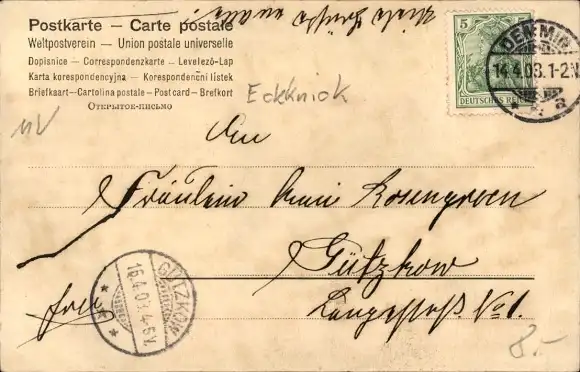 Postkarte — Carte postale
Weltpostverein — Union postale universelle
Dopisnice — Correspondenzkarte — Levelező-Lap
Karta korespondencyjna — Korespondenčni listek
Briefkaart — Cartolina postale — Post card — Brefkort
Открытое письмо
Viele Grüße
5
DEUTSCHES REICH
14.4.03.1-2N.
a
Eckknick
An
Fräulein Rosengreen
Gützkow
Langestraß No 1.
frei
GÜTZKOW
15.4.0 4-5V.
8.-